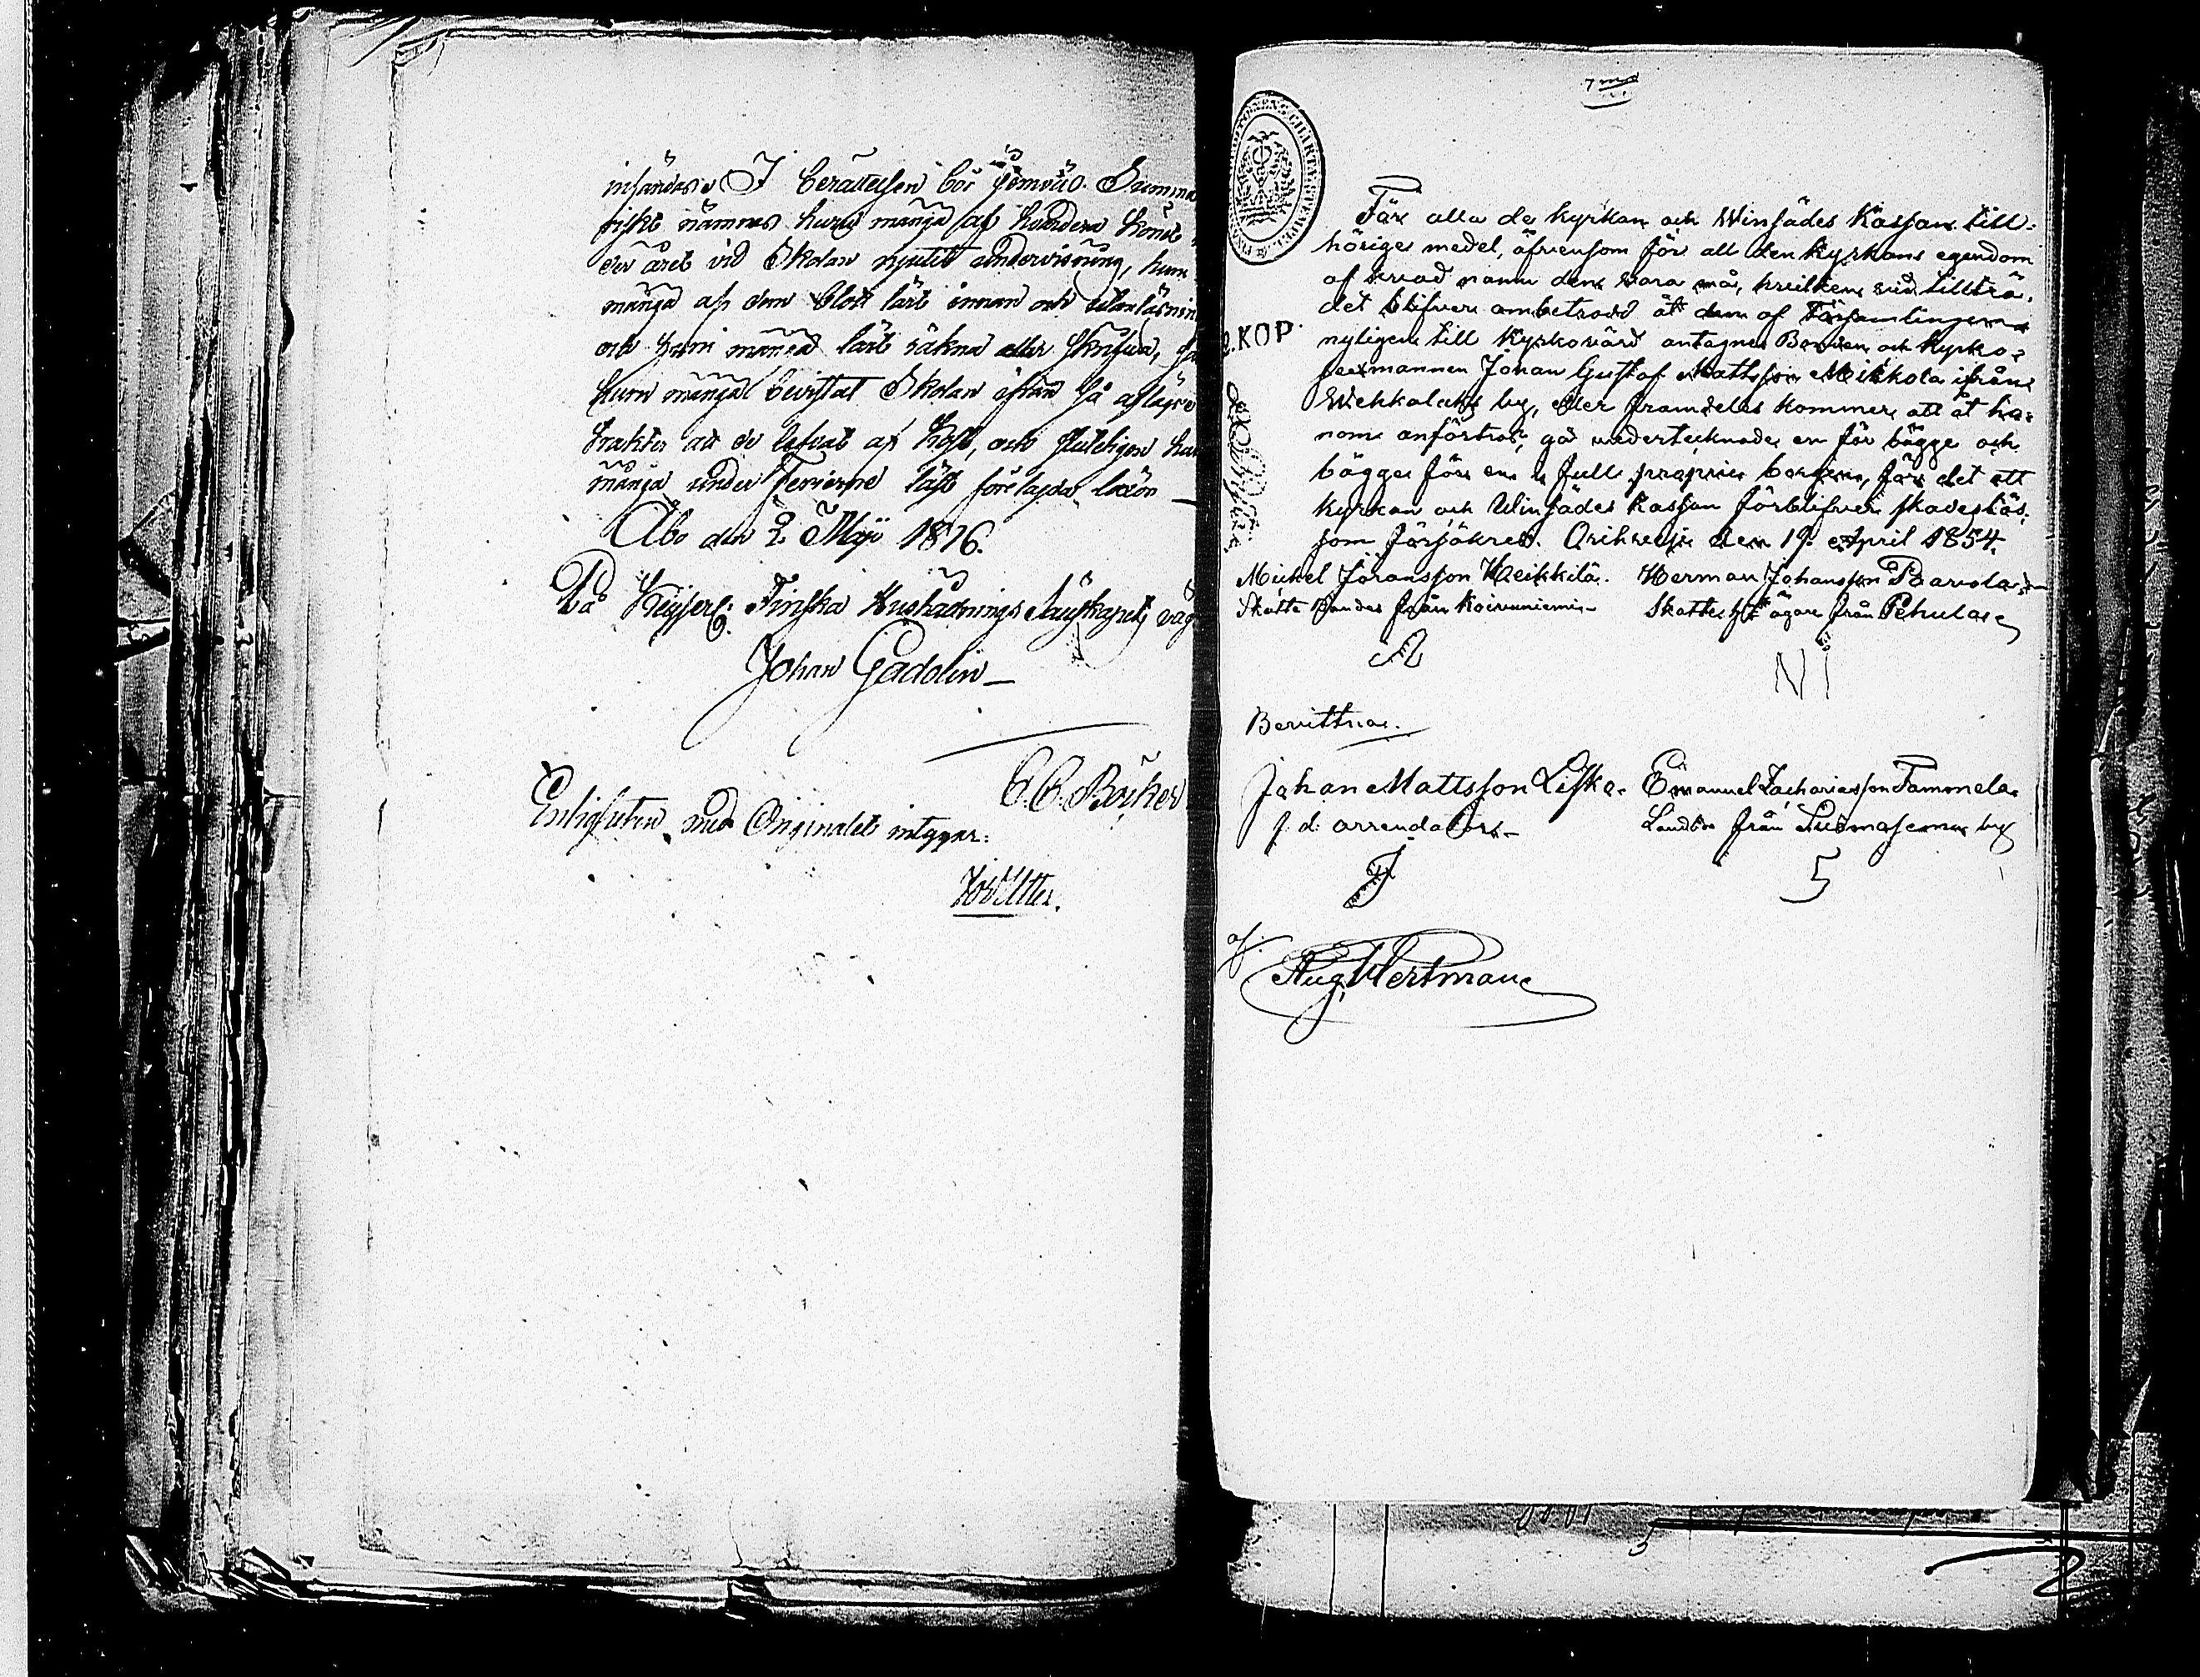 insändas. I berättelsen bör jemväl Summa
riskt nämnas huru många af hvardera Könet
det året vid Skolan njutit undervisning, huru
många af dem blott lärt innan och utanläsning
och huru många lärt räkna eller skrifva,
huru många bevistat Skolan ifrån så aflägsna
trakter att de lefvat af Kost, och slutligen huru
många under Ferierne läst förelagda lexor —
Åbo den 2 Maji 1816.
På Kejserl: Finska Hushållnings Sällskapets väg
Johan Gadolin —
C. C. Böcker
Enligheten med Originalet intygar:
7
För alla de kyrkan och Winsädes Kassan till-
höriga medel, äfvensom för all den kyrkans egendom
af hvad namn den vara må, hvilken vid tillträ-
det blifver ombetrodd åt den af Församlingen
nyligen till Kyrkovärd antagne Bonden och Kyrko-
sexmannen Johan Gustaf Mattsson Mikkola ifrån
Wehkalaks by, eller framdeles kommer att åt ho-
nom anförtros, gå undertecknade en för bägge och
bägge för en i full proprie borgen, för det att
kyrkan och Winsädes Kassan förblifver skadeslös;
som försäkras. Orihvesi den 19 April 1854.
Mickel Jöransson Heikkilä. Herman Johansson Paavola
Skatte Bonde från Koivuniemi — Skattehemmans ägare från Pehula
KOP.
Bevittna.
Johan Mattsson Liska. Emanuel Zachariasson Tammela
f. d. arrendator — från by
Aug. Hertman